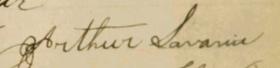 Arthur Lavarie